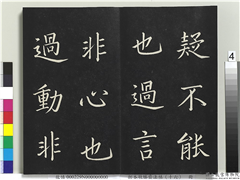 疑不能
也過言
非心也
過動非
4